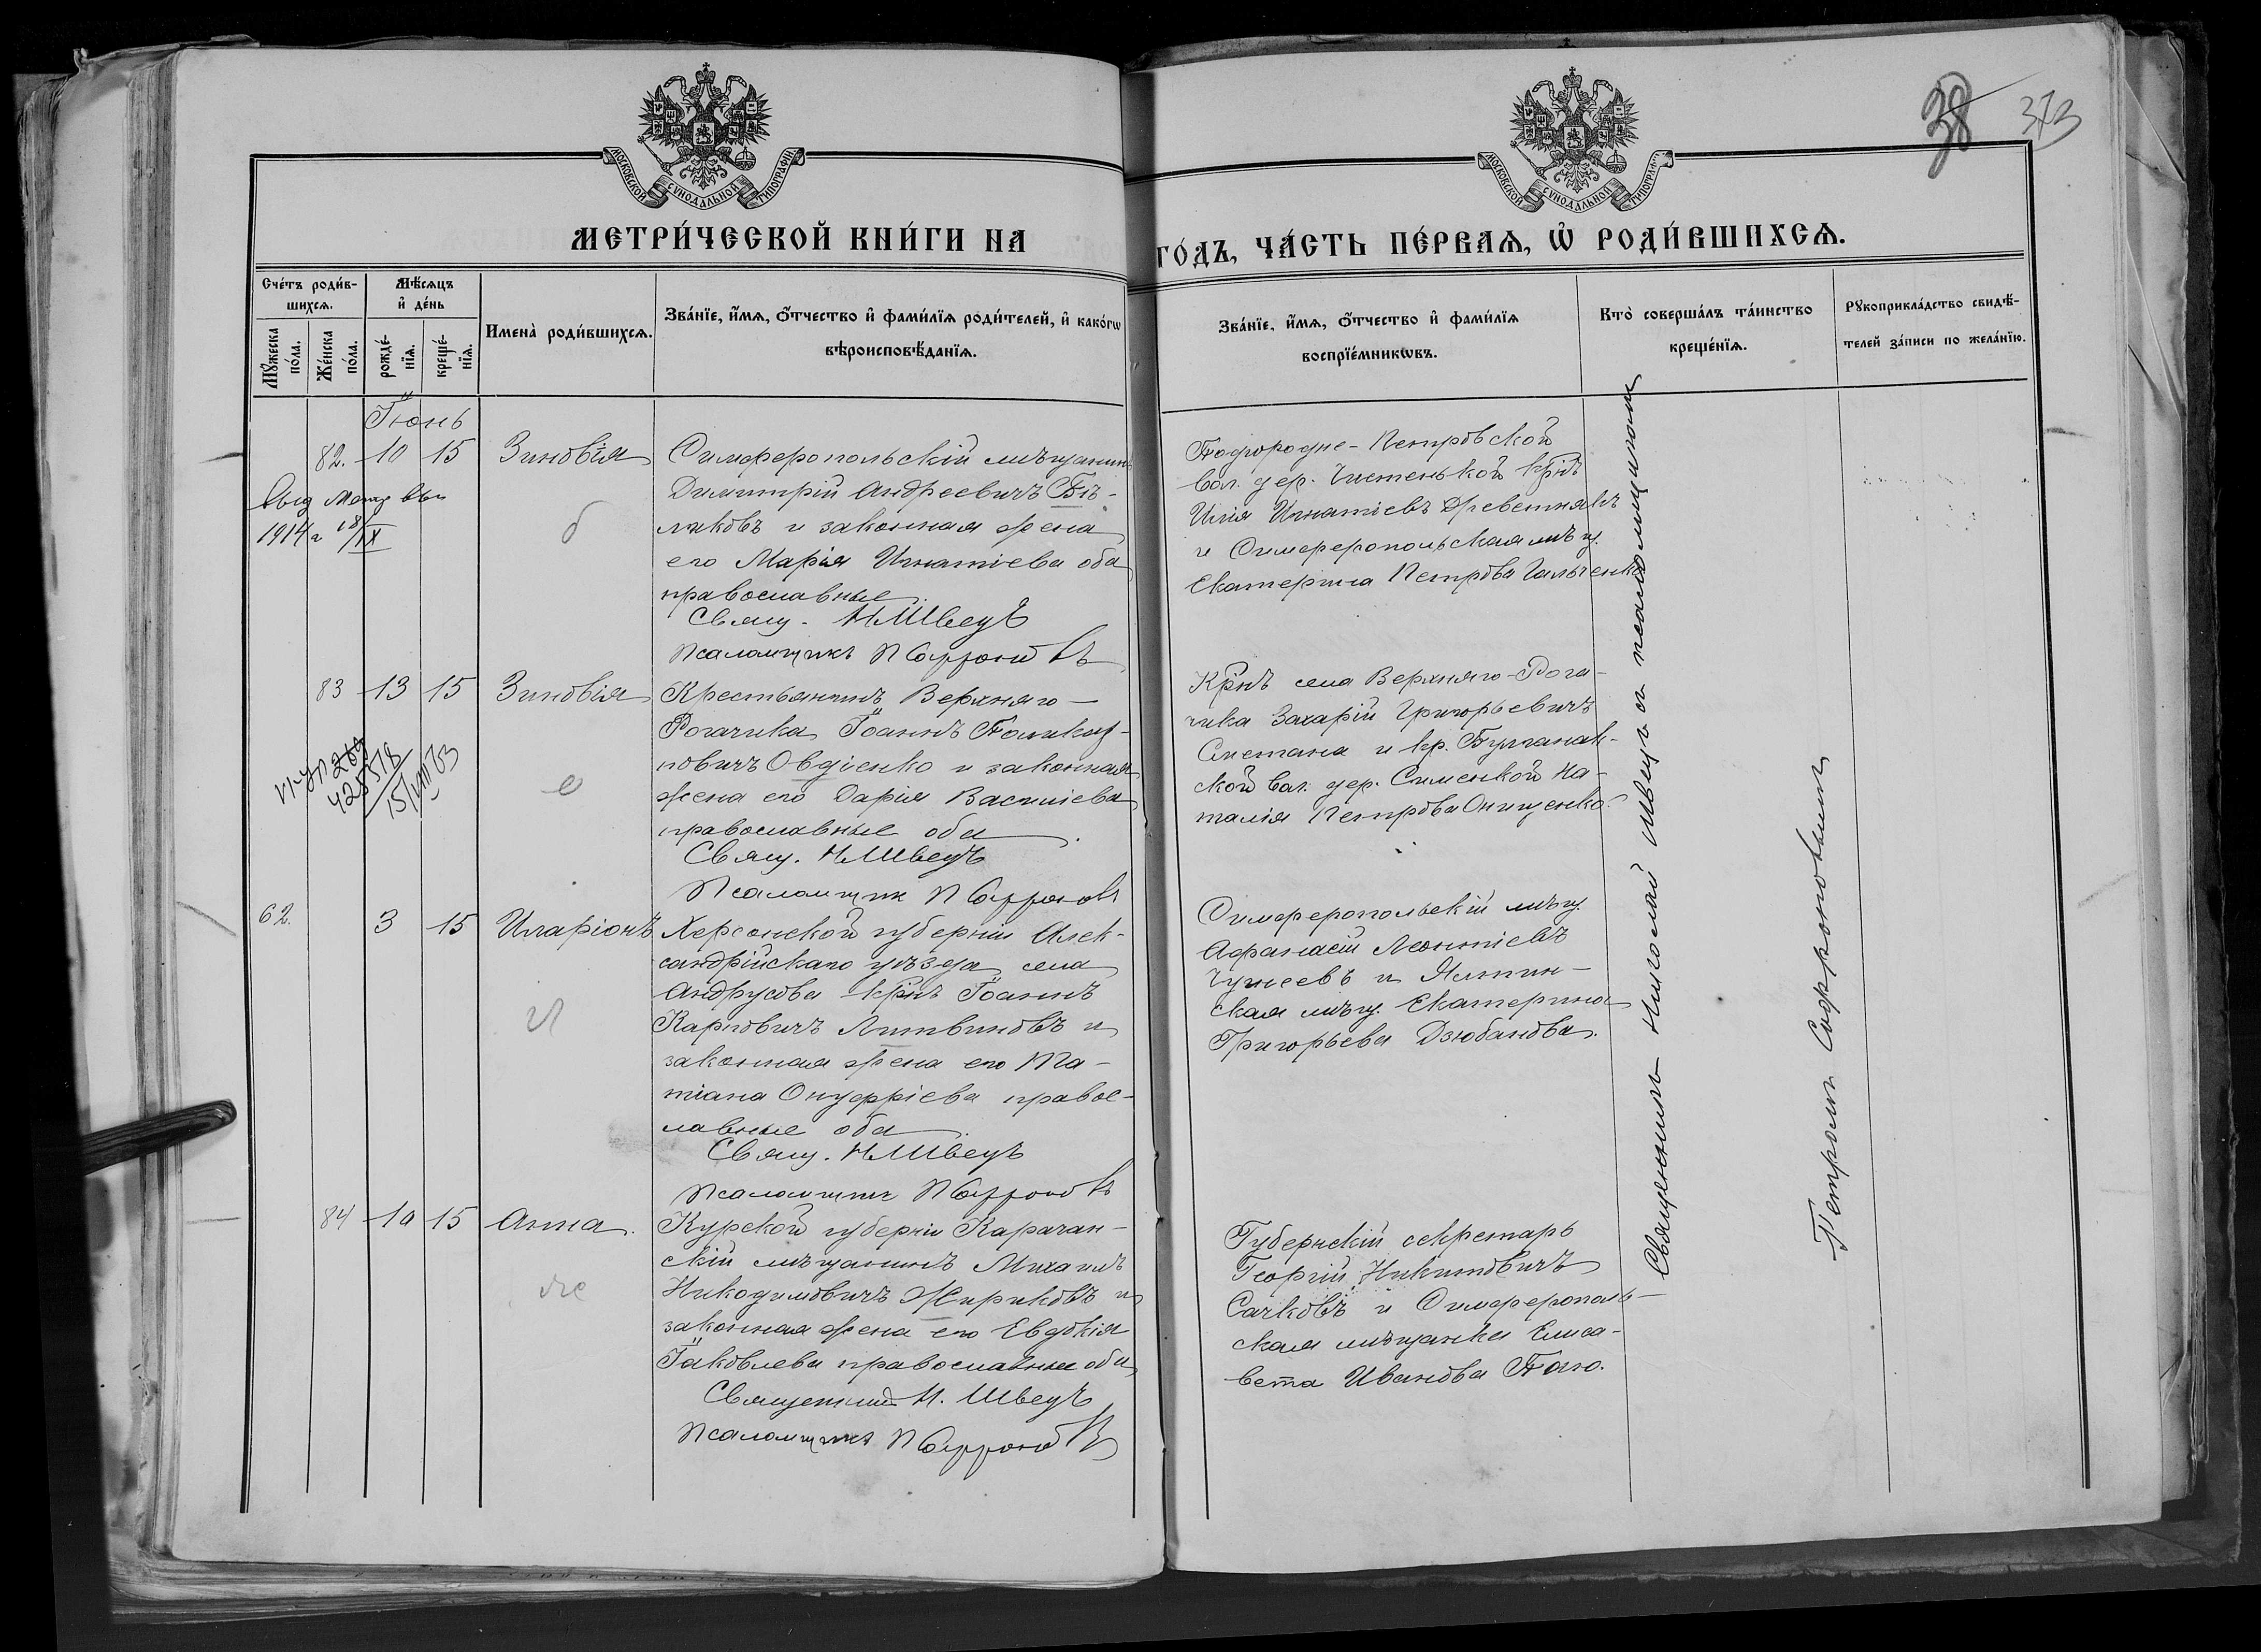 38 373
МОСКОВСКОЙ СѴНОДАЛЬНОЙ ТИПОГРАФІИ
МОСКОВСКОЙ СѴНОДАЛЬНОЙ ТИПОГРАФІИ
МЕТРИ́ЧЕСКОЙ КНИ́ГИ НА
ГО́ДЪ, ЧА́СТЬ ПЕ́РВАѦ, Ѡ҆ РОДИ́ВШИХСѦ.
Сче́тъ роди́в-
шихсѧ.
Мѹ́жеска по́ла.
Же́нска по́ла.
Мѣ́сѧцъ
и҆ де́нь
рожде́-
нїѧ.
креще́-
нїѧ.
Имена̀ роди́вшихсѧ.
Зва́нїе, и҆́мѧ, ѻ҆́тчество и҆ фами́лїѧ роди́телей, и҆ како́гѡ
вѣроисповѣ́данїѧ.
Зва́нїе, и҆́мѧ, ѻ҆́тчество и҆ фами́лїѧ
воспрїе́мникѡвъ.
Кто̀ соверша́лъ та́инство
креще́нїѧ.
Рѹкоприкла́дство свидѣ́-
телей за́писи по жела́нїю.
Іюнь
82. 10 15 Зиновія
Симферопольскій мѣщанинъ
Димитрій Андреевичъ Бѣ-
ляковъ и законная жена
его Марія Игнатіева оба
православные
Свящ. Н Швецъ
Псаломщикъ П Софроновъ
выд метр вып
1914 г 18/IX
б
Подгородне-Петровской
вол. дер. Чистенькой крнъ
Илія Игнатіевъ Древетнякъ
и Симферопольская мѣщ.
Екатерина Петрова Гальченко
83 13 15 Зиновія
Крестьянинъ Верхняго-
Рогачика Іоаннъ Поликар-
повичъ Овдіенко и законная
жена его Дарія Василіева
православные оба
Свящ. Н Швецъ
Псаломщик П Софроновъ
о
Крнъ села Верхняго-Рога-
чика Захарій Григорьевичъ
Сметана и кр. Булганак-
ской вол. дер. Сименкой На-
талія Петрова Онищенко
62. 3 15 Иларіонъ
Херсонской губерніи Алек-
сандрійскаго уѣзда села
Андрусова крнъ Іоаннъ
Карповичъ Литвиновъ и
законная жена его Та-
тіана Онуфріева правос-
лавные оба
Свящ. Н Швецъ
Псаломщикъ П Софроновъ
л
Симферопольскій мѣщ.
Афанасій Леонтіевъ
и Ялтин-
ская мѣщ. Екатерина
Григорьева Дзюбанова.
84 10 15 Анна.
Курской губерніи Карачан-
скій мѣщанинъ Михаилъ
Никодимовичъ Жириковъ и
законная жена его Евдокія
Іаковлева православные оба
Священникъ Н. Швецъ
Псаломщикъ П Софроновъ
ж
Губернскій секретарь
Георгій Никитовичъ
Сачковъ и Симферополь-
ская мѣщанка Елиса-
вета Иванова
Священникъ Николай Швецъ съ псаломщикомъ
Петромъ Софроновымъ